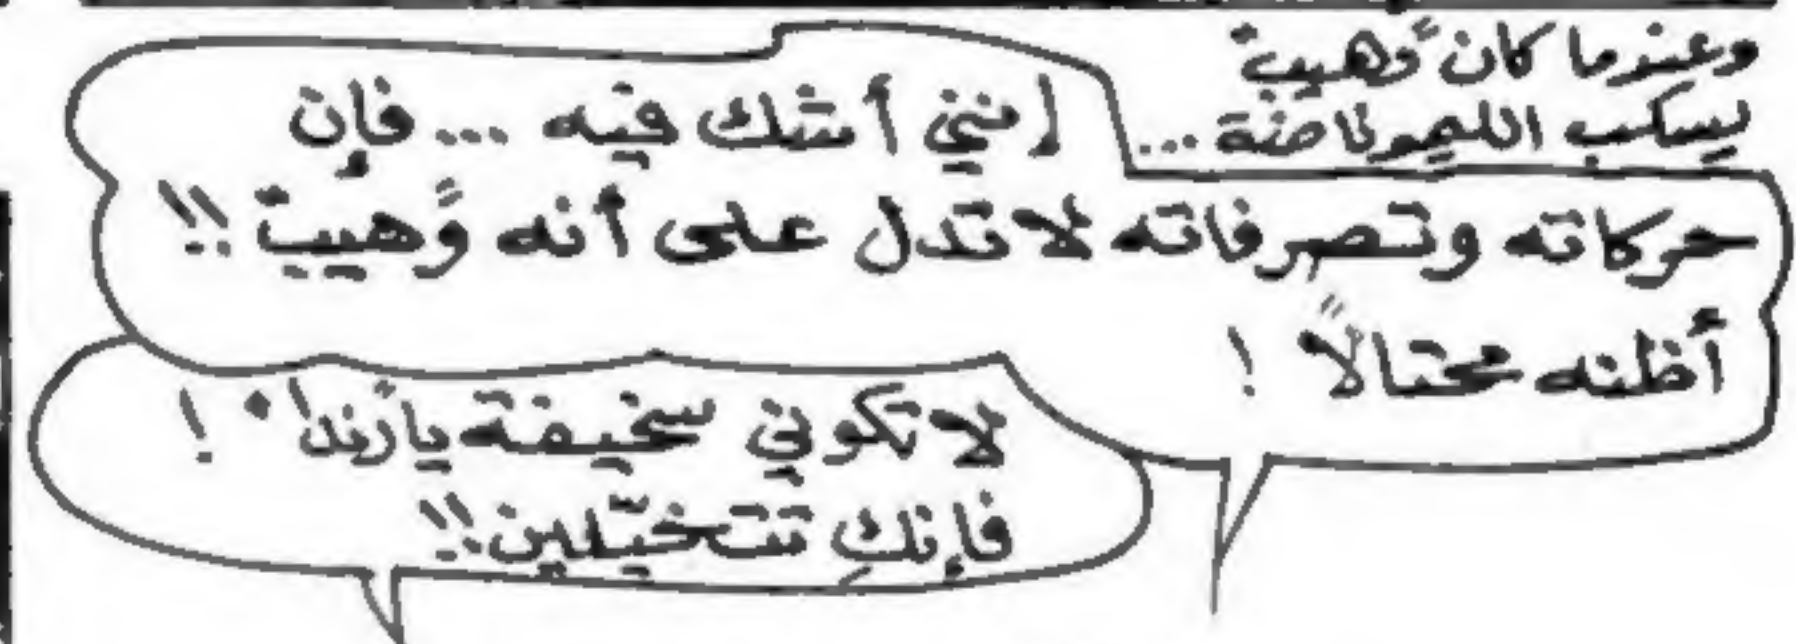 وعندما كان "وهيب"
يسكب الليموناضة ...
إنني أشك فيه ... فإن
حركاته وتصرفاته لا تدل على أنه "وهيب" !!
أظنه محتالاً !
لا تكوني سخيفة يا "رندا" !
فإنكِ تتخيّلين !!